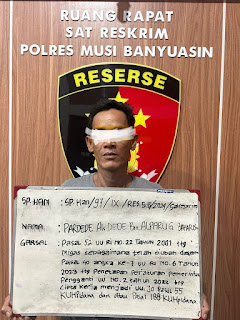 RUANG RAPAT
SAT RESKRIM
POLRES MUSI BANYUASIN
RESERSE
SP. HAN : SP. Han / 97 / IX / RES.5.5/2024/Satreskrim
NAMA : PARDEDE Als DEDE Bin ALPIRUS
PASAL : Pasal 52 UU RI No. 22 Tahun 2001 ttg
Migas sebagaimana telah diubah dalam
Pasal 40 angka ke 7 UU RI No. 6 Tahun
2023 ttg Penetapan Peraturan Pemerintah
Pengganti UU No. 2 Tahun 2022 ttg
Cipta Kerja menjadi UU Jo Pasal 55
KUHPidana dan atau Pasal 188 KUHPidana